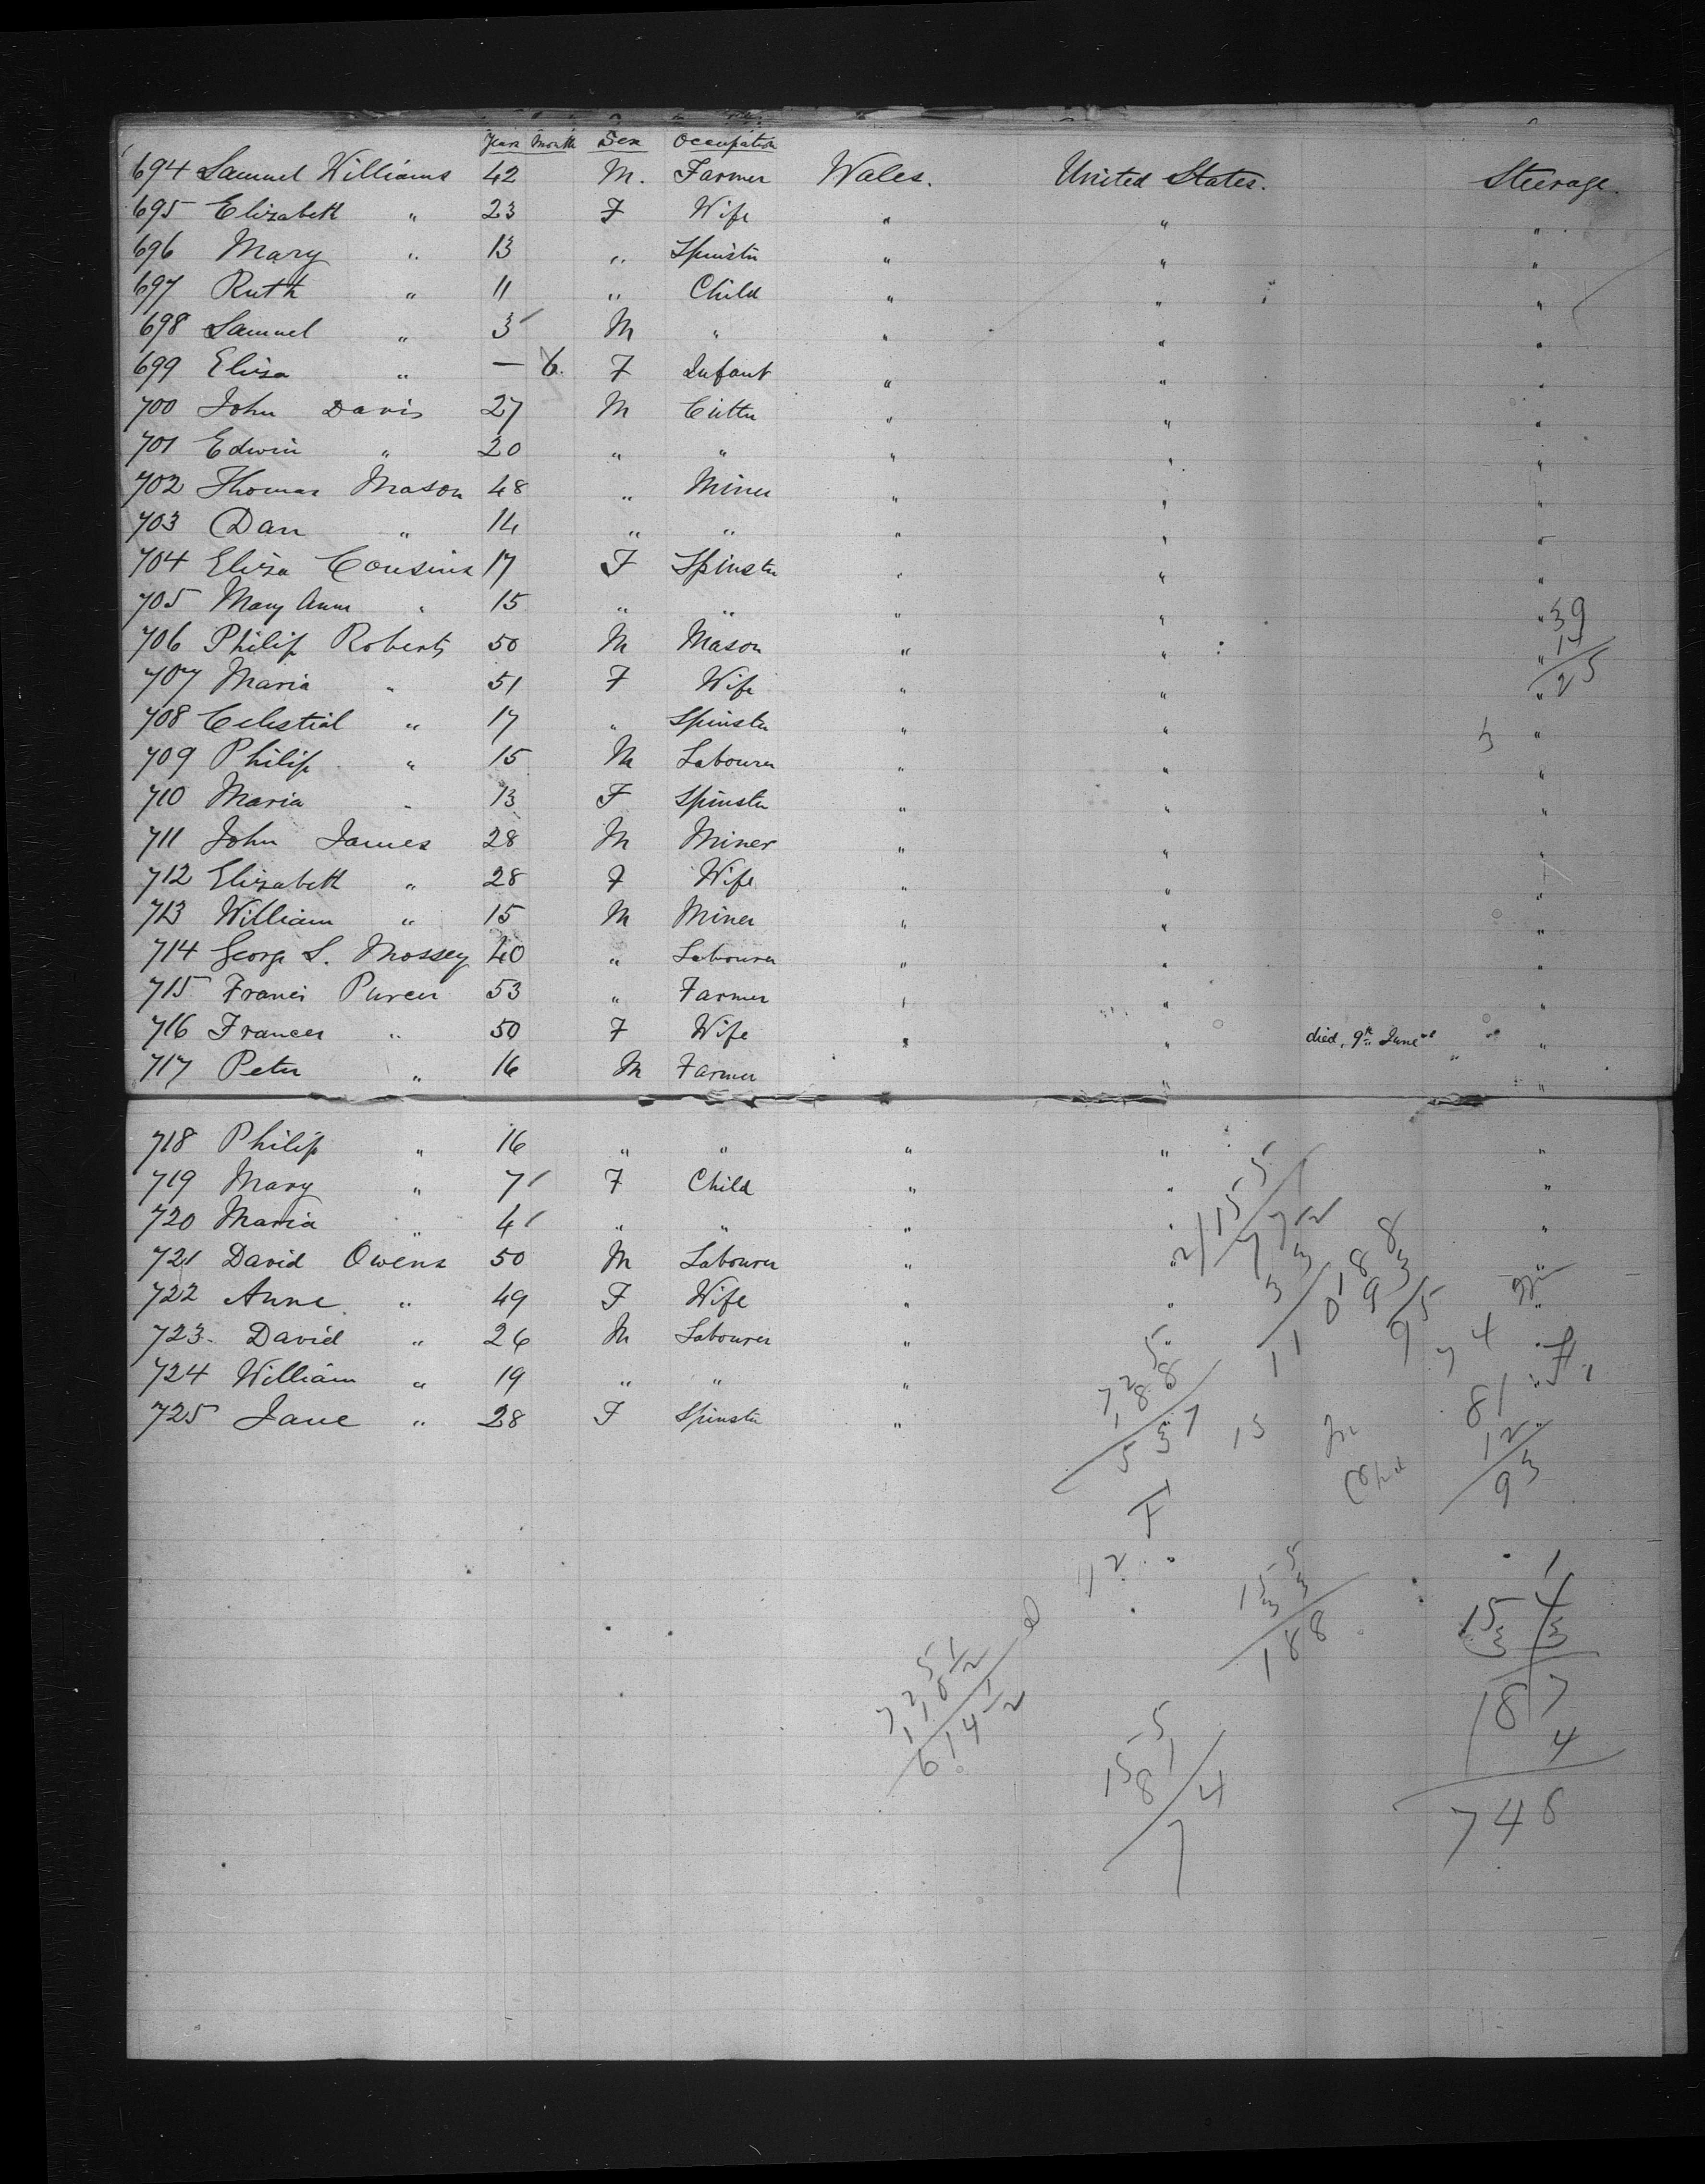 Years Month Sex Occupation
694 Samuel Williams 42 M. Farmer Wales. United States. Steerage.
695 Elizabeth " 23 F Wife " " "
696 Mary " 13 " Spinster " " "
697 Ruth " 11 " Child " " "
698 Samuel " 3 M " " " "
699 Eliza " — 6. F Infant " " "
700 John Davis 27 M Cutter " " "
701 Edwin " 20 " " " " "
702 Thomas Mason 48 " Miner " " "
703 Dan " 14 " " " " "
704 Eliza Cousins 17 F Spinster " " "
705 Mary Ann " 15 " " " " " 39
706 Philip Roberts 50 M Mason " " "
707 Maria " 51 F Wife " " " 25
708 Celestial " 17 " Spinster " " "
709 Philip " 15 M Labourer " " "
710 Maria " 13 F Spinster " " "
711 John James 28 M Miner " " "
712 Elizabeth " 28 F Wife " " "
713 William " 15 M Miner " " "
714 George S. Mossey 40 " Labourer " " "
715 Francis 53 " Farmer " " "
716 Frances " 50 F Wife " " died, 9th June "
717 Peter " 16 M Farmer " "
718 Philip " 16 " " " " "
719 Mary " 7 F Child " " "
720 Maria " 4 " " " " "
721 David Owens 50 M Labourer " " "
722 Anne " 49 F Wife " " "
723. David " 26 M Labourer " " "
724 William " 19 " " " "
725 Jane " 28 F Spinster " "
2/155
77 1/2
33
110
188
93
95
74
725
188
537
13
81
12
93
F
12
155
33
188
154
33
187
4
748
725
614 1/2
155
81
74